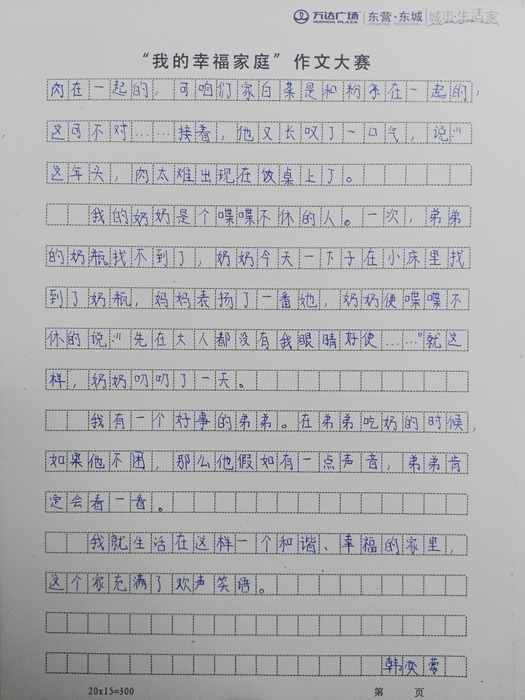 万达广场 WANDA PLAZA 东营·东城 城市·生活家
“我的幸福家庭”作文大赛
肉在一起的，可咱们家白菜是和粉条在一起的，
这可不对……接着，他又长叹了一口气，说：“
这年头，肉太难出现在饭桌上了。
我的奶奶是个喋喋不休的人。一次，弟弟
的奶瓶找不到了，奶奶今天一下子在小床里找
到了奶瓶，妈妈表扬了一番她，奶奶便喋喋不
休的说：“先在大人都没有我眼睛好使……”就这
样，奶奶叨叨了一天。
我有一个好事的弟弟。在弟弟吃奶的时候，
如果他不困，那么他假如有一点声音，弟弟肯
定会看一看。
我就生活在这样一个和谐、幸福的家里，
这个家充满了欢声笑语。
韩奕蒙
20x15=300 第 页